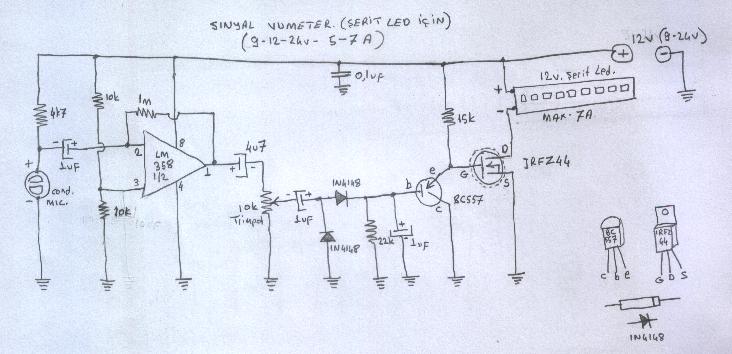 SINYAL VUMETER. (ŞERİT LED İÇİN)
(9-12-24v - 5-7A)
12v (9-24v)
+
-
0,1uF
12v. Şerit Led.
+
-
MAX. 7A
4k7
10k
1m
15k
+
-
1uF
2
8
LM
358
1/2
1
3
4
4u7
+
-
cond.
MIC.
10k
10k
Trimpot
-
+
1uF
1N4148
1N4148
22k
+
1uF
b
e
c
BC557
G
D
S
IRFZ44
BC
557
c b e
IRFZ
44
G D S
1N4148